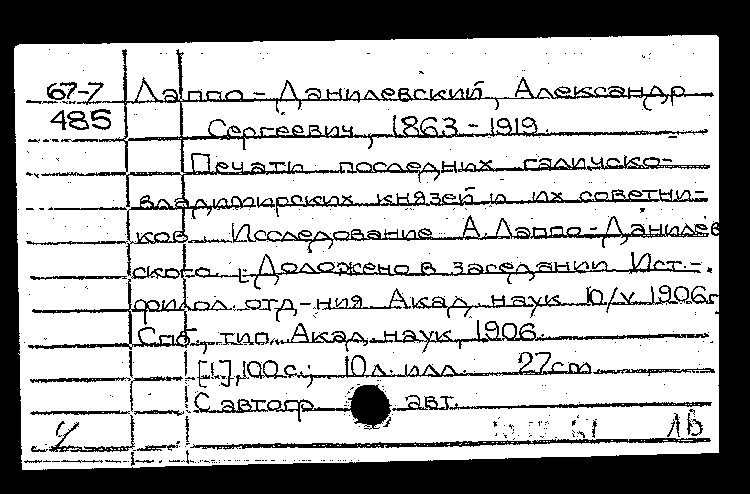 67-7 Лаппо-Данилевский, Александр
485 Сергеевич, 1863-1919.
Печати последних галичско-
владимирских князей и их советни-
ков. Исследование А.Лаппо-Данилев
ского. [Доложено в заседании Ист.-
филол. отд-ния Акад. наук 10/V 1906г
Спб., тип. Акад. наук, 1906.
[1], 100 с.; 10 л. илл. 27cm
С автогр. авт.
1b